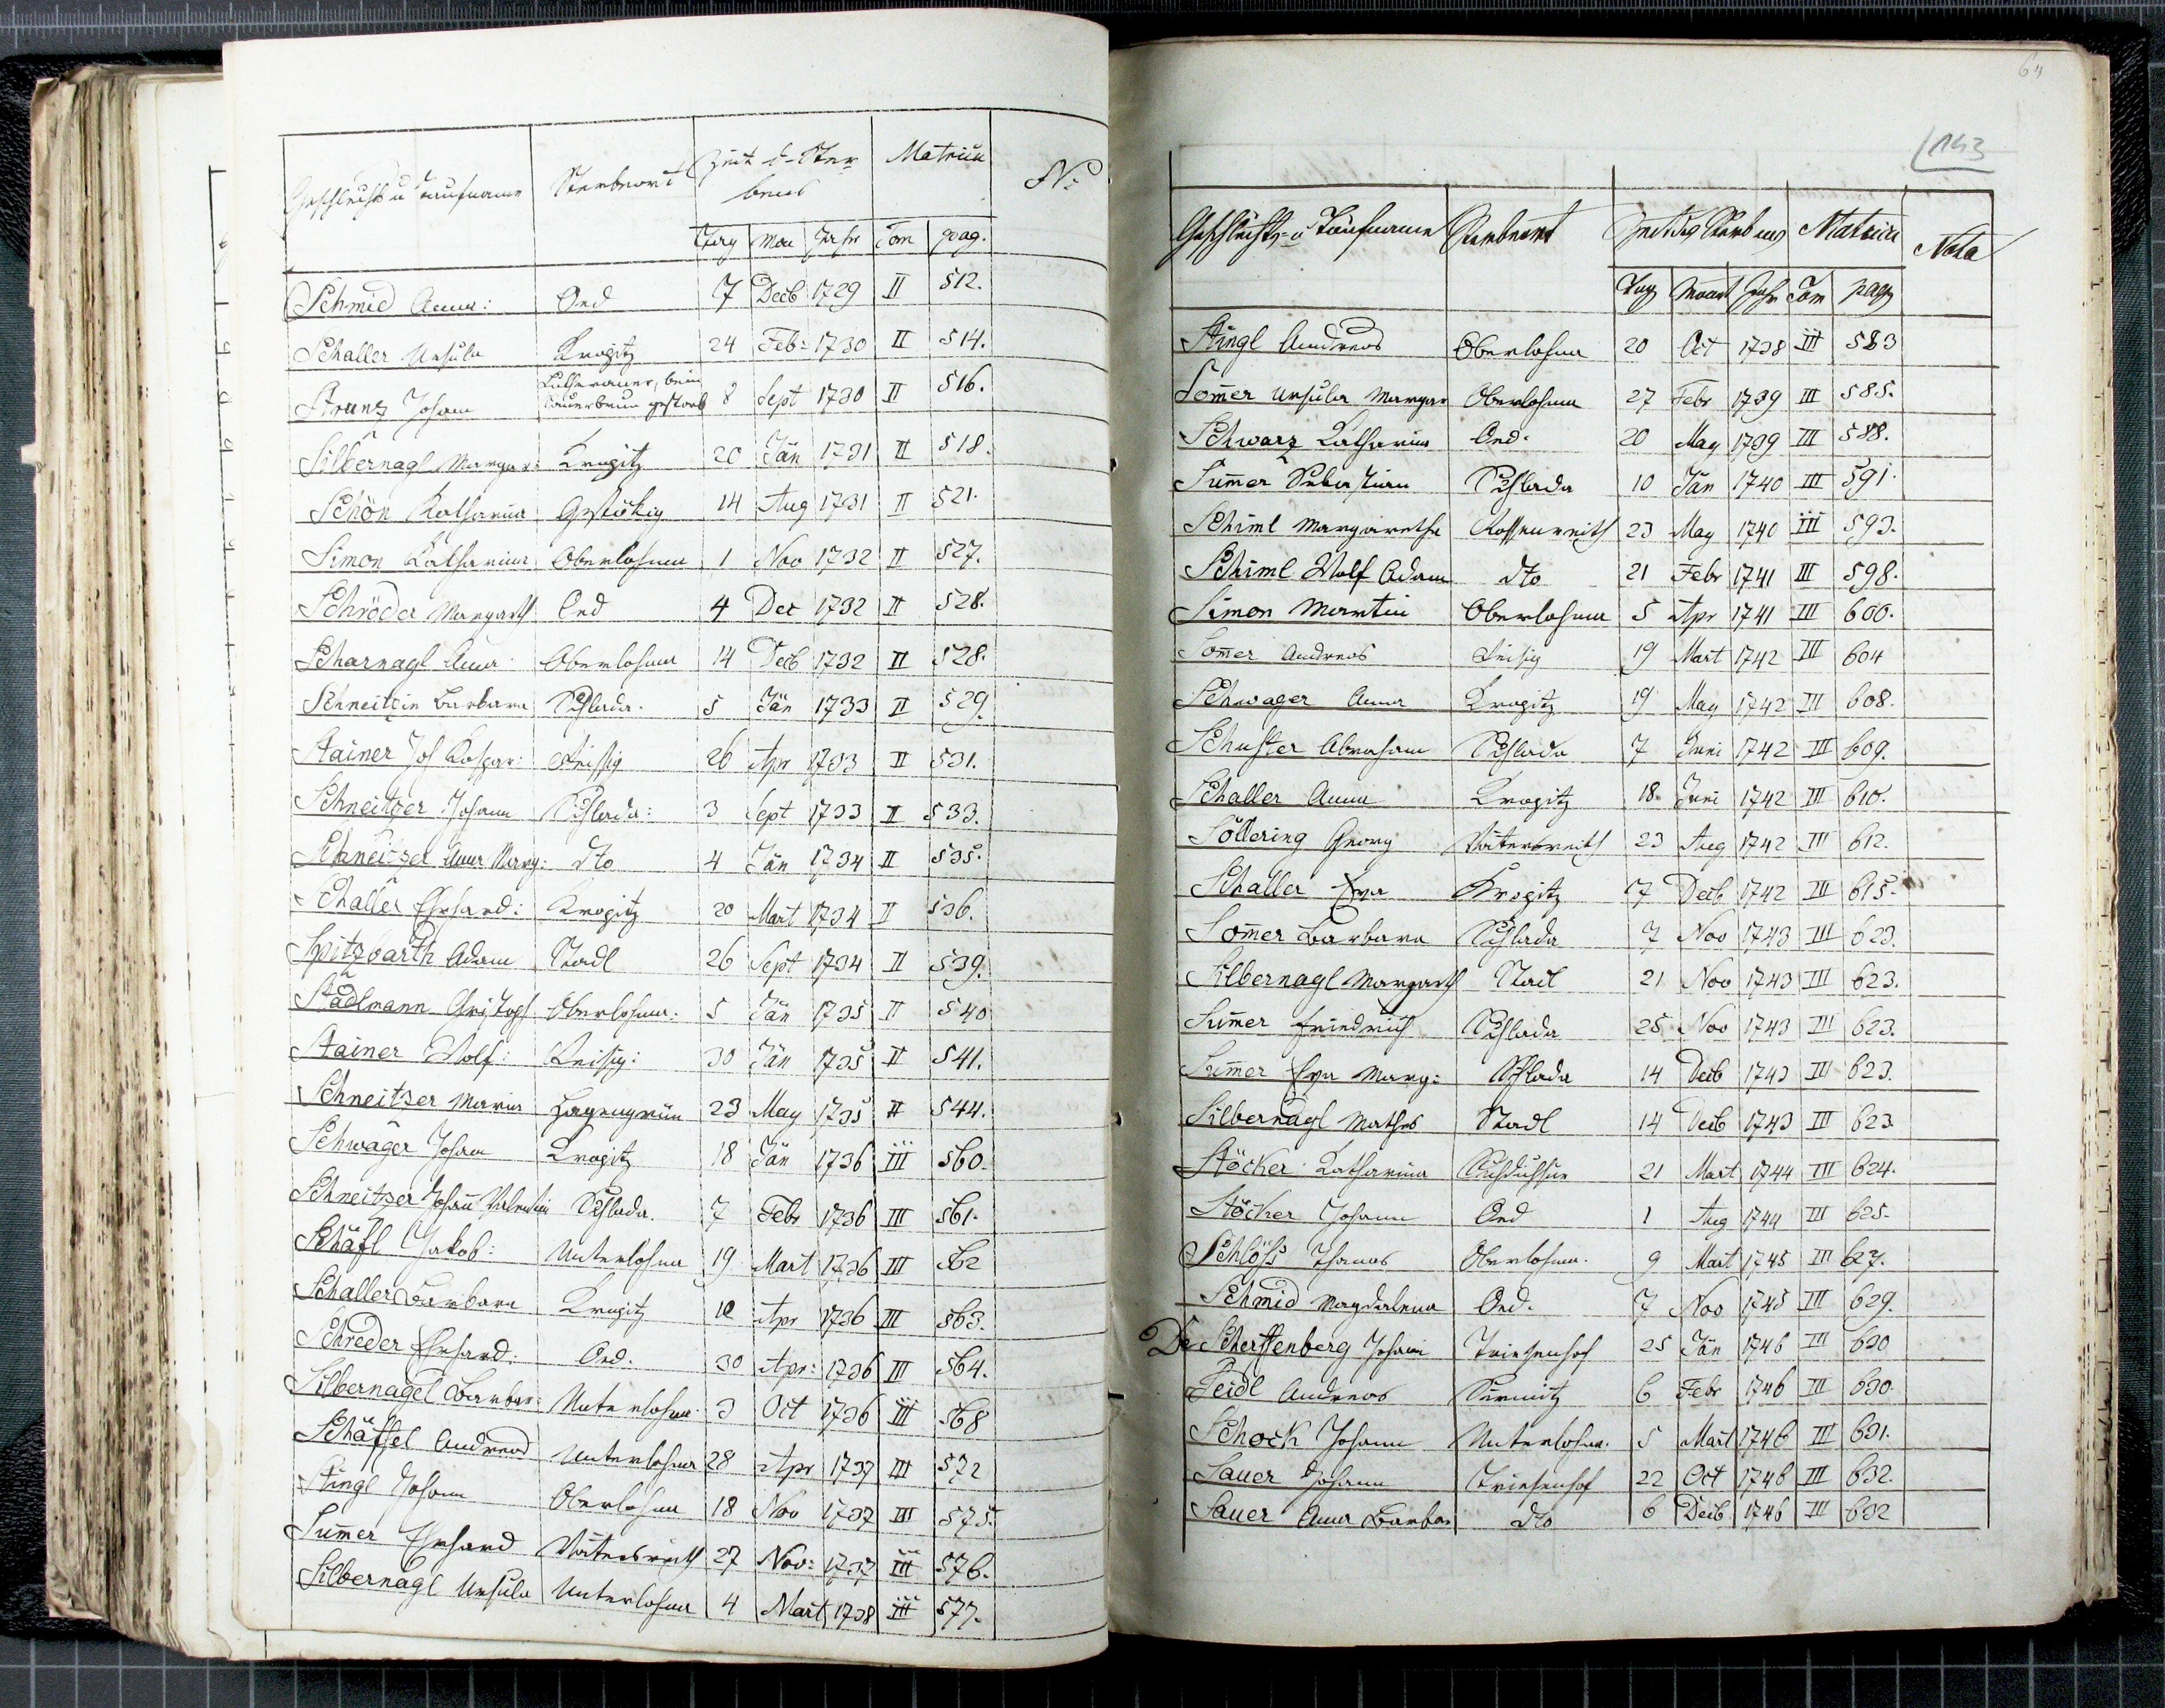 Geschlechts u Taufname Sterbeort Zeit d. Ster= Matrick N:
bens
Tag Mon Jahr Tom pag.
Schmid Anna: Ord 7 Decb 1729 II 512.
Schaller Ursula Kropitz 24 Feb: 1730 II 514.
Lutheraner, beim
Strunz Johann Sauerbrunn gestorb 8 Sept 1730 II 516.
Silbernagl Margar: Kropitz 20 Jän 1731 II 518.
Schön Katharina 14 Aug 1731 II 521.
Simon Katharina Oberlohma 1 Nov 1732 II 527.
Schröder Margareth Ord 4 Dec 1732 II 528.
Scharnagl Anna: Oberlohma 14 Decb 1732 II 528.
Barbara Schlada. 5 Jän 1733 II 529.
Stainer Joh Kaspar: Reissig 26 Apr 1733 II 531.
Schneitzer Johann Schlada: 3 Sept 1733 II 533.
Schneitzer Anna Marg: dto 4 Jän 1734 II 535.
Schaller Erhard: Kropitz 20 Mart 1734 II 536.
Spitzbarth Adam Stadl 26 Sept 1734 II 539.
Stadlmann Christoph Oberlohma: 5 Jän 1735 II 540
Stainer Wolf: Reissig: 30 Jän 1735 II 541.
Schneitzer Maria Hagengrün 23 May 1735 II 544.
Schwager Johann Kropitz 18 Jän 1736 III 560.
Schneitzer Johann Valentin Schlada. 7 Febr 1736 III 561.
Schäfl Jakob: Unterlohma 19 Mart 1736 III 562
Schaller Barbara Kropitz 10 Apr 1736 III 563.
Schreder Erhard: Ord. 30 Apr: 1736 III 564.
Silbernagel Barbar: Unterlohma 3 Oct 1736 III 568
Schäffel Andreas Unterlohma 28 Apr 1737 III 572
Stingl Johann Oberlohma 18 Nov 1737 III 575.
Sum̄er Erhard Watersreith 27 Nov: 1737 III 576.
Silbernagl Ursula Unterlohma 4 Mart 1738 III 577.
64
143
Geschlechts= u Taufname Sterbeort Zeit des Sterbens Matrick Nota
Tag Monat Jahr Tom pag
Stingl Andreas Oberlohma 20 Oct 1738 III 583
Som̄er Ursula Margar Oberlohma 27 Febr 1739 III 585.
Schwarz Katharina Ord. 20 May 1739 III 588.
Sum̄er Sebastian Schlada 10 Jän 1740 III 591.
Schiml Margaretha Rossenreith 23 May 1740 III 593.
Schiml Wolf Adam dto 21 Febr 1741 III 598.
Simon Martin Oberlohma 5 Apr 1741 III 600.
Som̄er Andreas Reisig 19 Mart 1742 III 604
Schwager Anna Kropitz 19 May 1742 III 608.
Schuster Abraham Schlada 7 Juni 1742 III 609.
Schaller Anna Kropitz 18. Juni 1742 III 610.
Söllering Georg Watersreith 23 Aug 1742 III 612.
Schaller Eva Kropitz 17 Decb 1742 III 615.
Som̄er Barbara Schlada 7 Nov 1743 III 623.
Silbernagl Margareth Stadl 21 Nov 1743 III 623.
Sum̄er Friedrich Schlada 25 Nov 1743 III 623.
Sum̄er Eva Marg: Schlada 14 Decb 1743 III 623.
Silbernagl Mathes Stadl 14 Decb 1743 III 623.
Stöcker Katharina 21 Mart 1744 III 624.
Stöcker Johann Ord 1 Aug 1744 III 625.
Schlöss Thomas Oberlohma. 9 Mart 1745 III 627.
Schmid Magdalena Ord. 7 Nov 1745 III 629.
De Scherffenberg Johann Triesenhof 25 Jän 1746 III 630
Seidl Andreas Sirmitz 6 Febr 1746 III 630.
Schock Johann Unterlohma. 5 Mart 1746 III 631.
Sauer Johann Triesenhof 22 Oct 1746 III 632.
Sauer Anna Barbar dto 6 Decb 1746 III 632